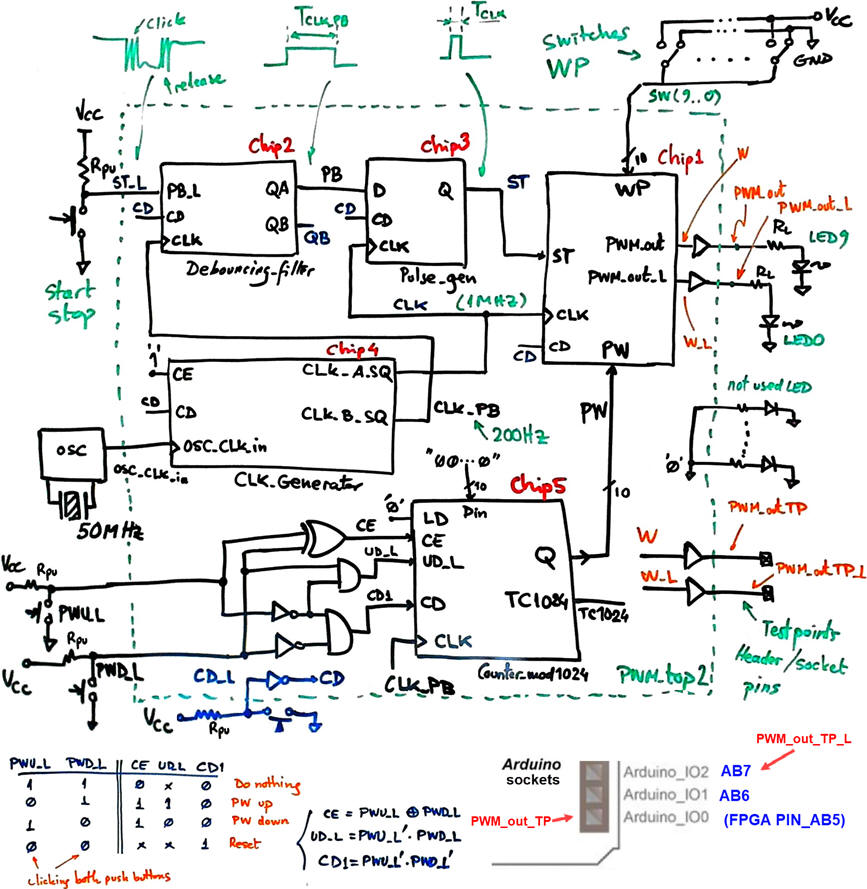 Click
release
TCLK_PB
TCLK
Switches
WP
Vcc
GND
SW(9..0)
Vcc
Rpu
ST_L
Start
stop
Chip2
PB_L
CD
CD
CLK
QA
QB
QB
Debouncing-filter
PB
Chip3
D
CD
CD
CLK
Q
Pulse_gen
ST
CLK
(1MHz)
10
Chip1
WP
ST
CLK
CD
CD
PW
PWM_out
PWM_out_L
W
W_L
PWM_out
PWM_out_L
RL
LED9
RL
LED0
Chip4
'1'
CE
CD
CD
OSC_CLK_in
CLK_A_SQ
CLK_B_SQ
CLK_Generator
OSC
OSC_CLK_in
50MHz
CLK_PB
200Hz
PW
10
not used LED
'0'
"00...0"
10
Chip5
Din
'0'
LD
CE
CE
UD_L
UD_L
CD1
CD
CLK
CLK_PB
Q
TC1024
TC1024
Counter_mod1024
Vcc
Rpu
PWU_L
Rpu
Vcc
PWD_L
CD_L
CD
Vcc
Rpu
W
W_L
PWM_outTP
PWM_outTP_L
Test points
Header/socket
pins
PWM_top2
PWU_L PWD_L CE UD_L CD1
1 1 0 x 0 Do nothing
0 1 1 1 0 PW up
1 0 1 0 0 PW down
0 0 x x 1 Reset
clicking both push buttons
CE = PWU_L ⊕ PWD_L
UD_L = PWU_L' · PWD_L
CD1 = PWU_L' · PWD_L'
PWM_out_TP_L
Arduino
sockets
Arduino_IO2 AB7
Arduino_IO1 AB6
PWM_out_TP
Arduino_IO0 (FPGA PIN_AB5)